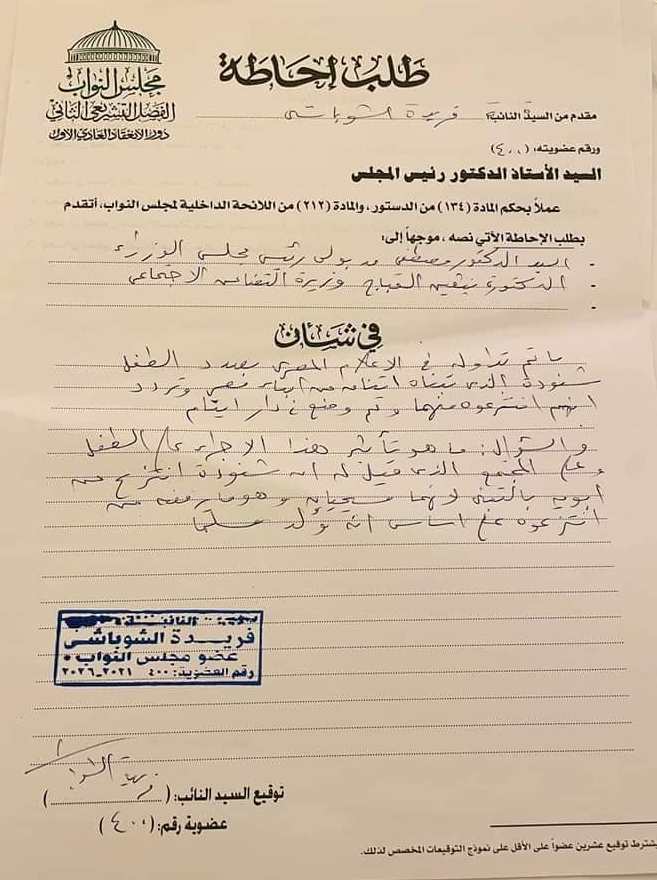 مجلس النواب
الفصل التشريعي الثاني
دور الانعقاد العادي الأول
طلب إحاطة
مقدم من السيد النائب/ة فريدة الشوباشى
ورقم عضويته: (٤٠٠)
السيد الأستاذ الدكتور رئيس المجلس
عملاً بحكم المادة (١٣٤) من الدستور، والمادة (٢١٢) من اللائحة الداخلية لمجلس النواب، أتقدم
بطلب الإحاطة الآتي نصه، موجهاً إلى:
- السيد الدكتور مصطفى مدبولى رئيس مجلس الوزراء
- الدكتورة نيفين القباج وزيرة التضامن الاجتماعى
-
في شأن
ما تم تداوله فى الاعلام المصرى بصدد الطفل
شنودة الذى تبناه اثنان من ابناء مصر وتردد
انهم انتزعوه منهما وتم وضع فى دار ايتام
والسؤال: ما هو تأثير هذا الاجراء على الطفل
وعلى المجتمع الذى قيل له ان شنودة انتزع من
ابويه بالتبنى لانهما مسيحيان وهو ما رفضه من
انتزعوه على اساس انه يولد مسلما
النائبة
فريدة الشوباشى
عضو مجلس النواب
رقم العضوية: ٤٠٠ ٢٠٢١-٢٠٢٦
توقيع السيد النائب: ( )
عضوية رقم: (٤٠٠)
يشترط توقيع عشرين عضواً على الأقل على نموذج التوقيعات المخصص لذلك.